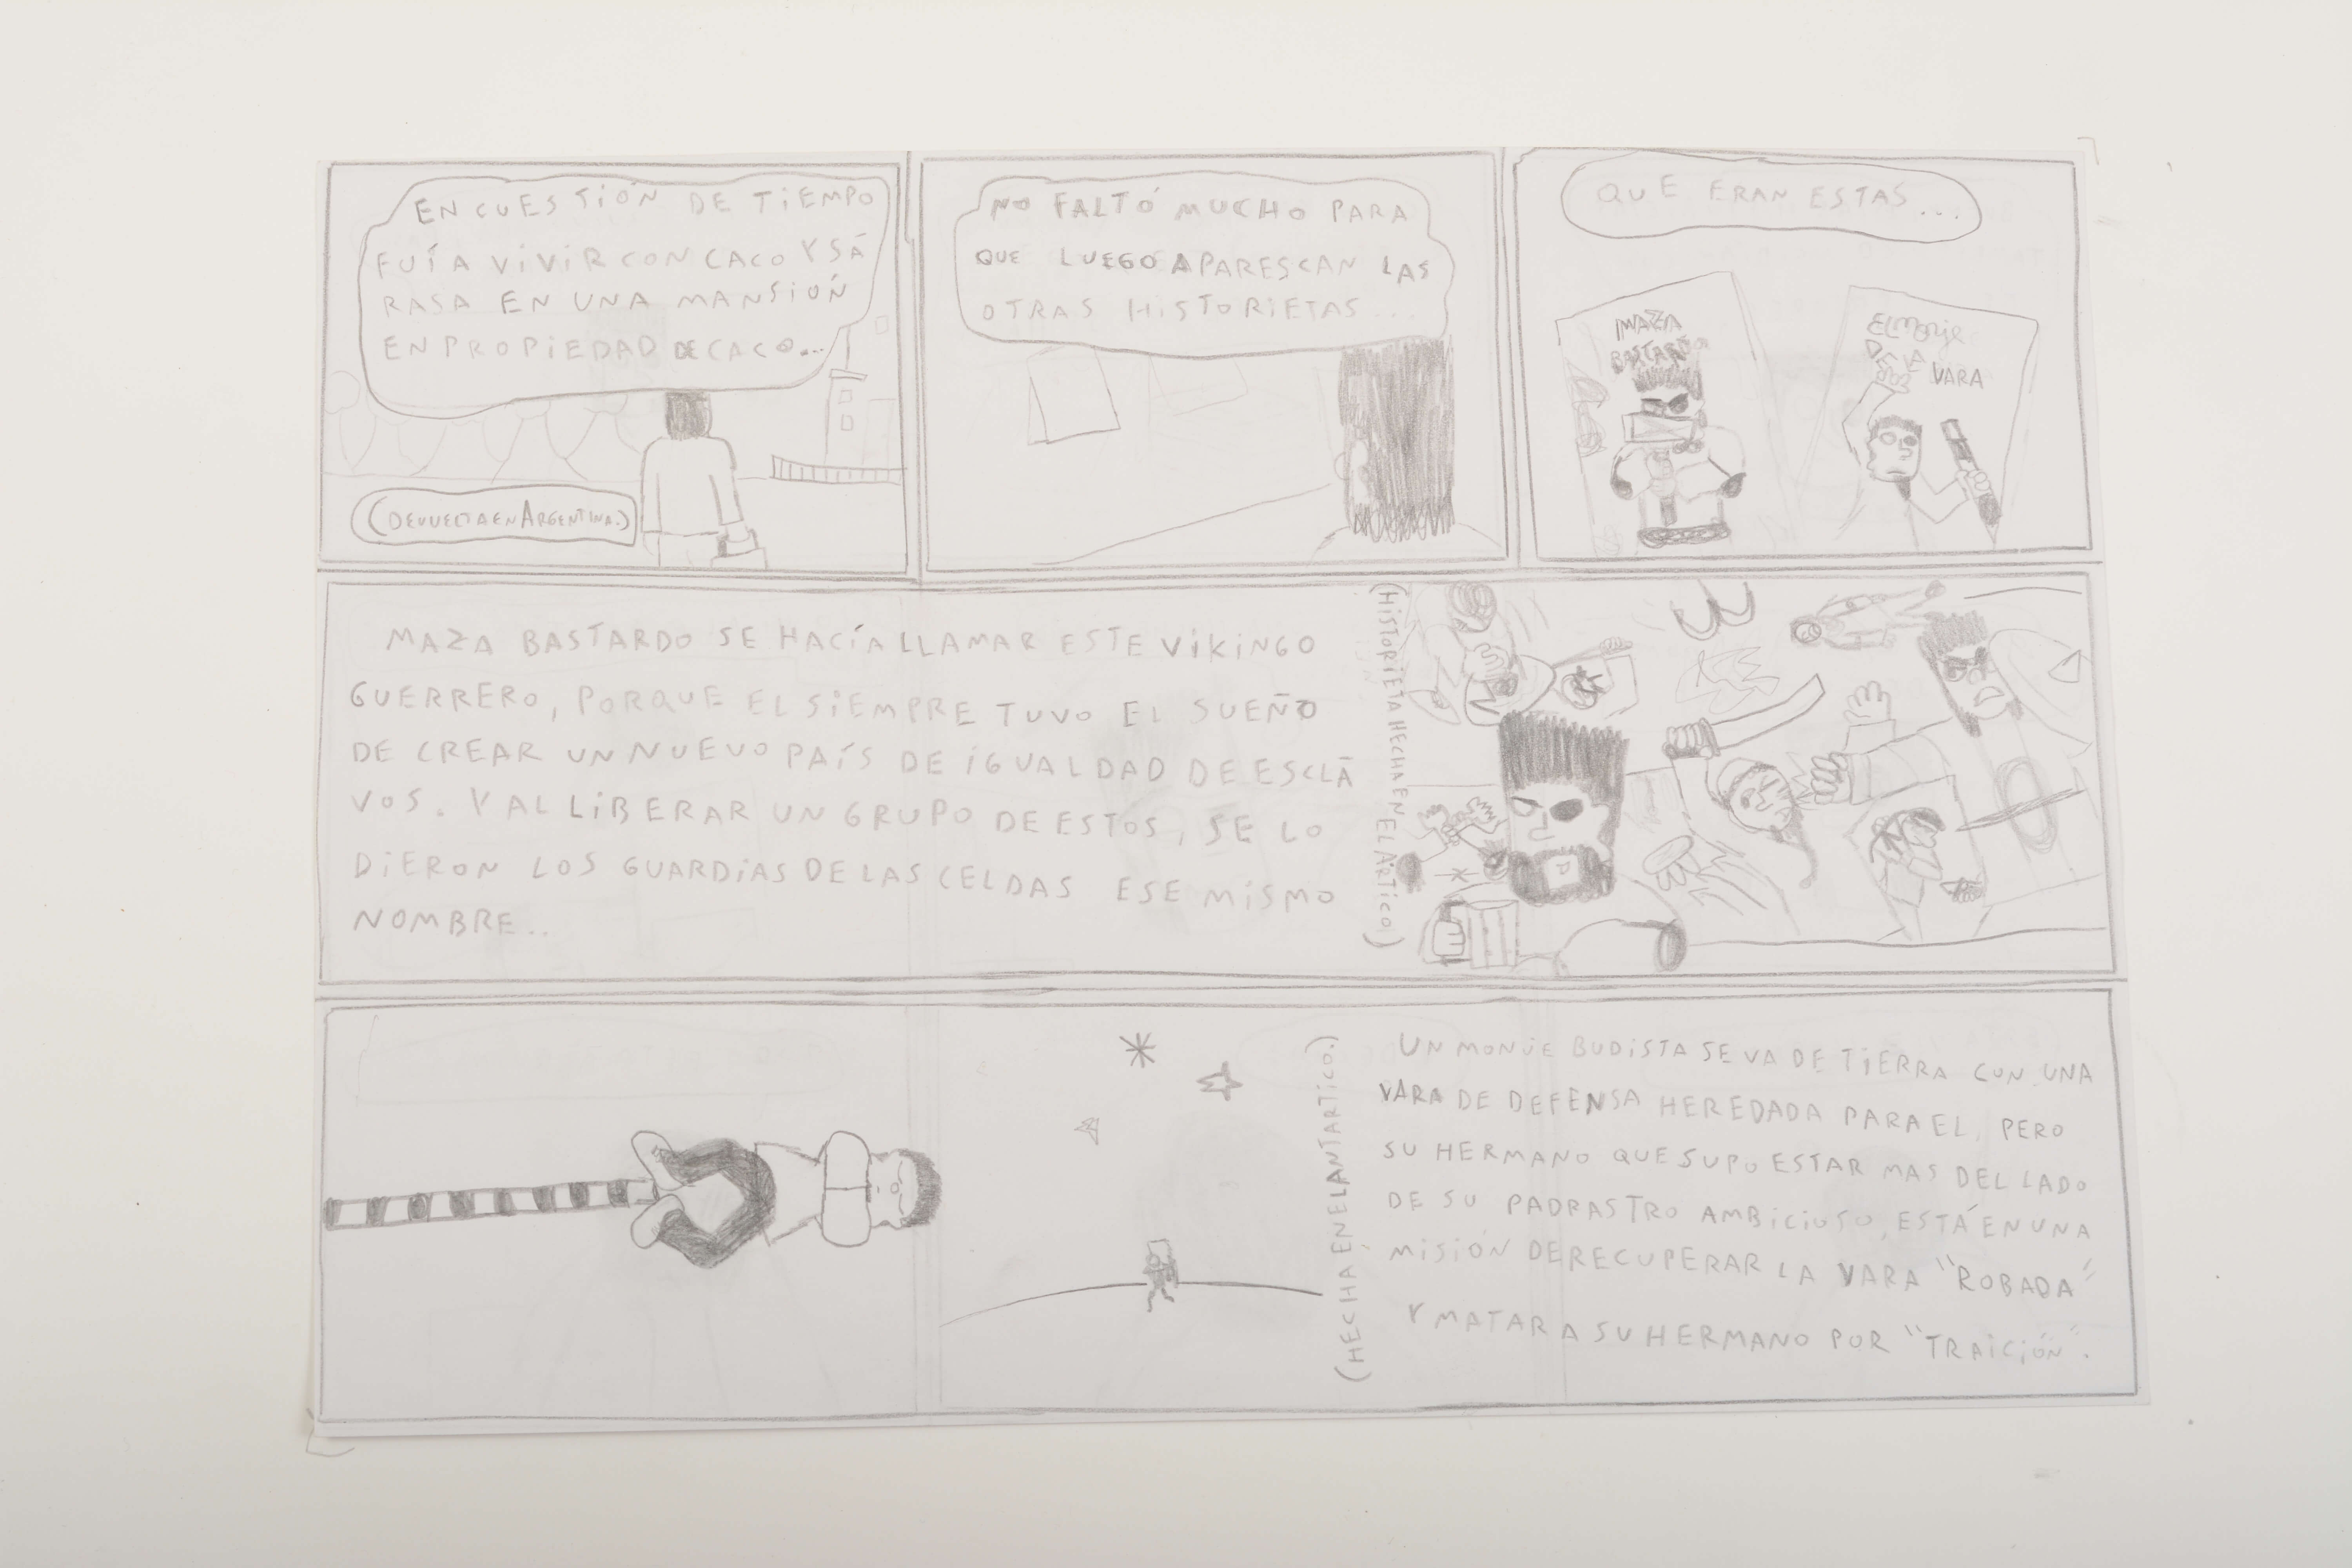 EN CUESTIÓN DE TIEMPO
FUÍ A VIVIR CON CACO Y SA
RASA EN UNA MANSIÓN
EN PROPIEDAD DE CACO...
(DE VUELTA EN ARGENTINA.)
NO FALTÓ MUCHO PARA
QUE LUEGO APARESCAN LAS
OTRAS HISTORIETAS...
QUE ERAN ESTAS...
MAZA
BASTARDO
EL MONJE
DE LA
VARA
MAZA BASTARDO SE HACÍA LLAMAR ESTE VIKINGO
GUERRERO, PORQUE EL SIEMPRE TUVO EL SUEÑO
DE CREAR UN NUEVO PAÍS DE IGUALDAD DE ESCLA
VOS. Y AL LIBERAR UN GRUPO DE ESTOS, SE LO
DIERON LOS GUARDIAS DE LAS CELDAS ESE MISMO
NOMBRE..
(HISTORIETA HECHA EN EL ÁRTICO)
(HECHA EN EL ANTARTICO.)
UN MONJE BUDISTA SE VA DE TIERRA CON UNA
VARA DE DEFENSA HEREDADA PARA EL, PERO
SU HERMANO QUE SUPO ESTAR MAS DEL LADO
DE SU PADRASTRO AMBICIOSO, ESTÁ EN UNA
MISIÓN DE RECUPERAR LA VARA "ROBADA"
Y MATAR A SU HERMANO POR "TRAICIÓN".